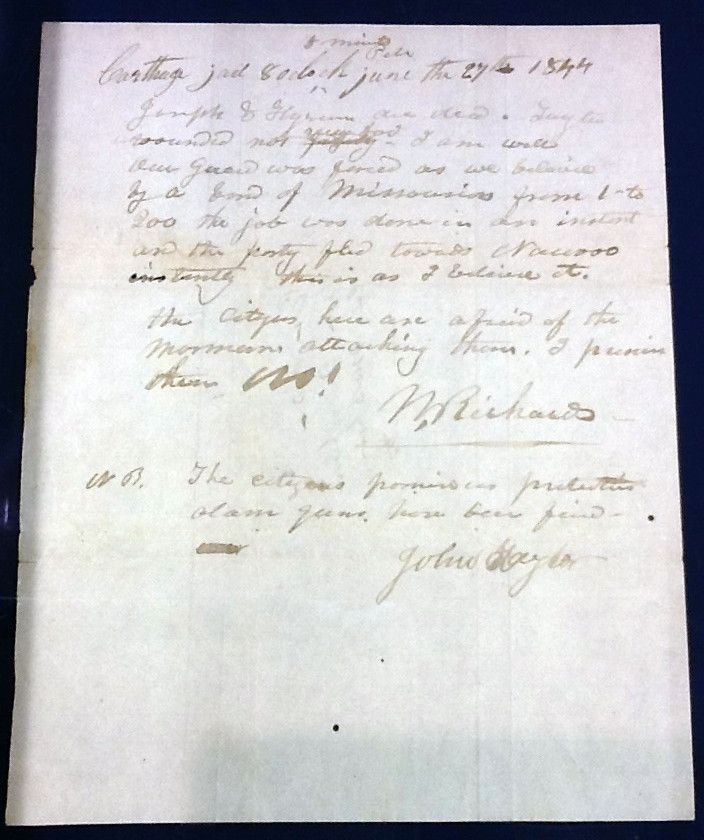 5 minits
Carthage jail 8 oclock june the 27th 1844
Joseph & Hyrum are dead. Taylor
wounded not very bad I am well
our Guard was forced as we believe
by a band of Missourians from 1 to
200 the job was done in an instant
and the party fled towards Nauvoo
instantly this is as I believe it.
the Citizens here are afraid of the
Mormons attacking them. I promise
them No!
W Richards
N B. The citizens promise us protection
alarm guns have been fired
John Taylor